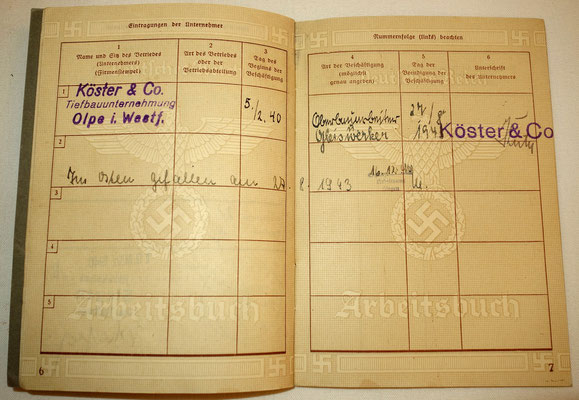 Eintragungen der Unternehmer
1
Name und Sitz des Betriebes
(Unternehmers)
(Firmenstempel)
2
Art des Betriebes
oder der
Betriebsabteilung
3
Tag des
Beginns der
Beschäftigung
1
Köster & Co.
Tiefbauunternehmung
Olpe i. Westf.
5./2. 40
2
Im Osten gefallen am 27.
3
4
5
Arbeitsbuch
6
Nummernfolge (links) beachten
4
Art der Beschäftigung
(möglichst
genau angeben)
5
Tag der
Beendigung der
Beschäftigung
6
Unterschrift
des Unternehmers
Oberbauarbeiter
Gleiswerker
27/8
Köster & Co
8. 1943
Arbeitsbuch
7